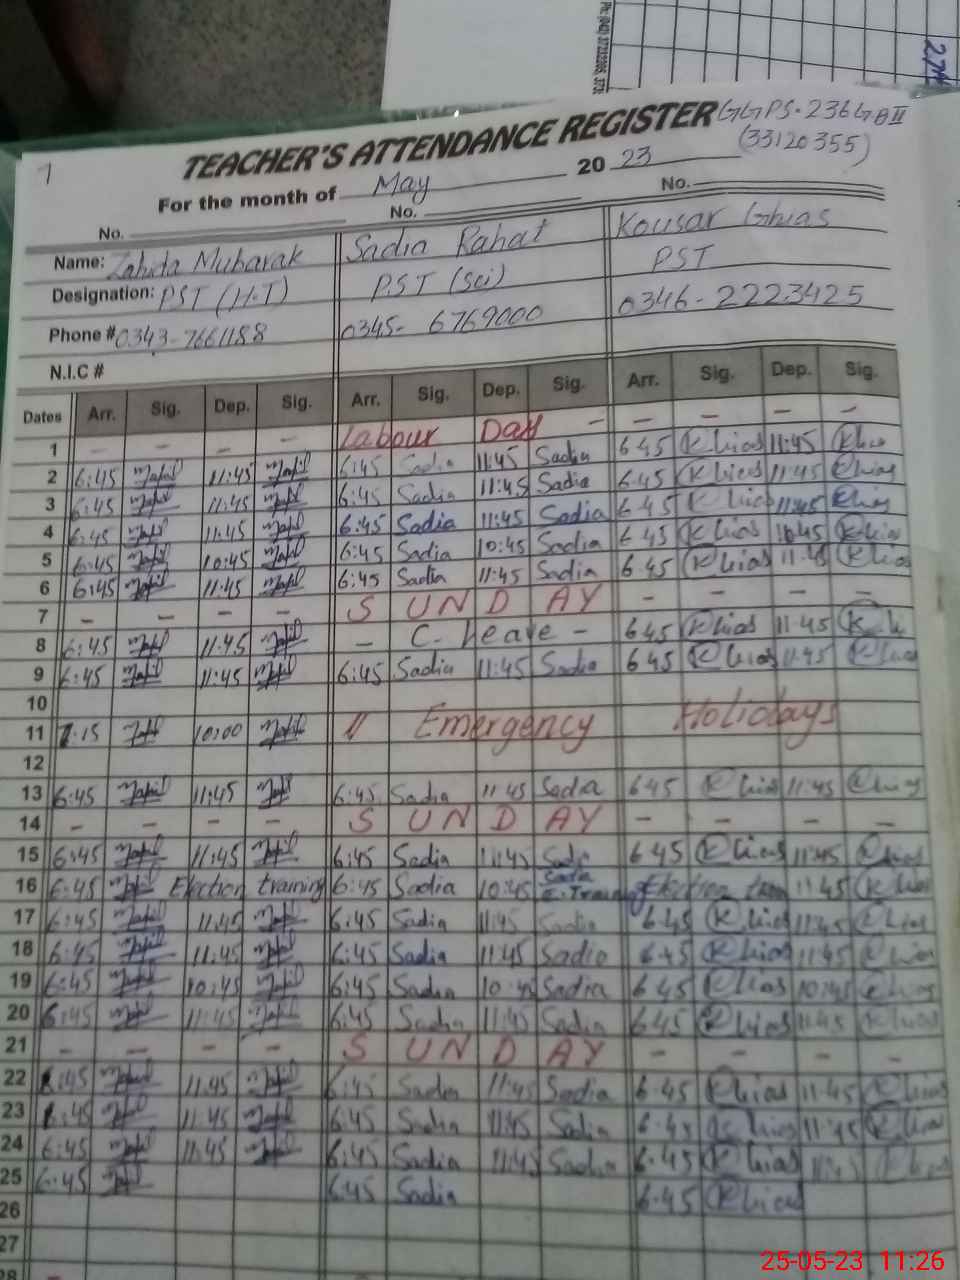 Ph: (042) 37232208, 373
274
7
TEACHER'S ATTENDANCE REGISTER GGPS-236 GB II
(33120355)
For the month of May 2023
No. No. No.
Name: Zahida Mubarak Sadia Rahat Kousar Ghias
Designation: PST (H.T) P.S.T (Sci) PST
Phone # 0343-7661188 0345- 6769000 0346-2223425
N.I.C #
Dates Arr. Sig. Dep. Sig. Arr. Sig. Dep. Sig. Arr. Sig. Dep. Sig.
1 - - - - Labour Day - - - - -
2 6:45 11:45 6:45 Sadia 11:45 Sadia 6.45 Khias 11:45
3 6:45 11:45 6:45 Sadia 11:45 Sadia 6.45 Khias 11:45 Khias
4 6:45 11:45 6:45 Sadia 11:45 Sadia 6.45 Khias 11:45
5 6:45 10:45 6:45 Sadia 10:45 Sadia 6.45 Khias 10:45 Khias
6 6:45 11:45 6:45 Sadia 11:45 Sadia 6.45 Khias 11:45 Khias
7 - - - - SUNDAY - - - -
8 6:45 11:45 - C. Leave - 6.45 Khias 11.45
9 6:45 11:45 6:45 Sadia 11:45 Sadia 6.45 Khias 11:45 Khias
10
11 7:15 10:00 // Emergency Holidays
12
13 6:45 11:45 6:45 Sadia 11:45 Sadia 6.45 Khias 11:45 Khias
14 - - - - SUNDAY - - - -
15 6:45 11:45 6:45 Sadia 11:45 Sadia 6.45 Khias 11:45 Khias
16 6:45 Election training 6:45 Sadia 10:45 Sadia E.Training Election 11.45 Khias
17 6:45 11:45 6:45 Sadia 11:45 Sadia 6.45 Khias 11:45 Khias
18 6:45 11:45 6:45 Sadia 11:45 Sadia 6.45 Khias 11:45 Khias
19 6:45 10:45 6:45 Sadia 10:45 Sadia 6.45 Khias 10:45 Khias
20 6:45 11:45 6:45 Sadia 11:45 Sadia 6.45 Khias 11:45 Khias
21 - - - - SUNDAY - - - -
22 6:45 11:45 6:45 Sadia 11:45 Sadia 6.45 Khias 11.45 Khias
23 6:45 11:45 6:45 Sadia 11:45 Sadia 6.45 Khias 11:45 Khias
24 6:45 11:45 6:45 Sadia 11:45 Sadia 6.45 Khias 11:45 Khias
25 6:45 6:45 Sadia 6.45 Khias
26
27
28
25-05-23 11:26